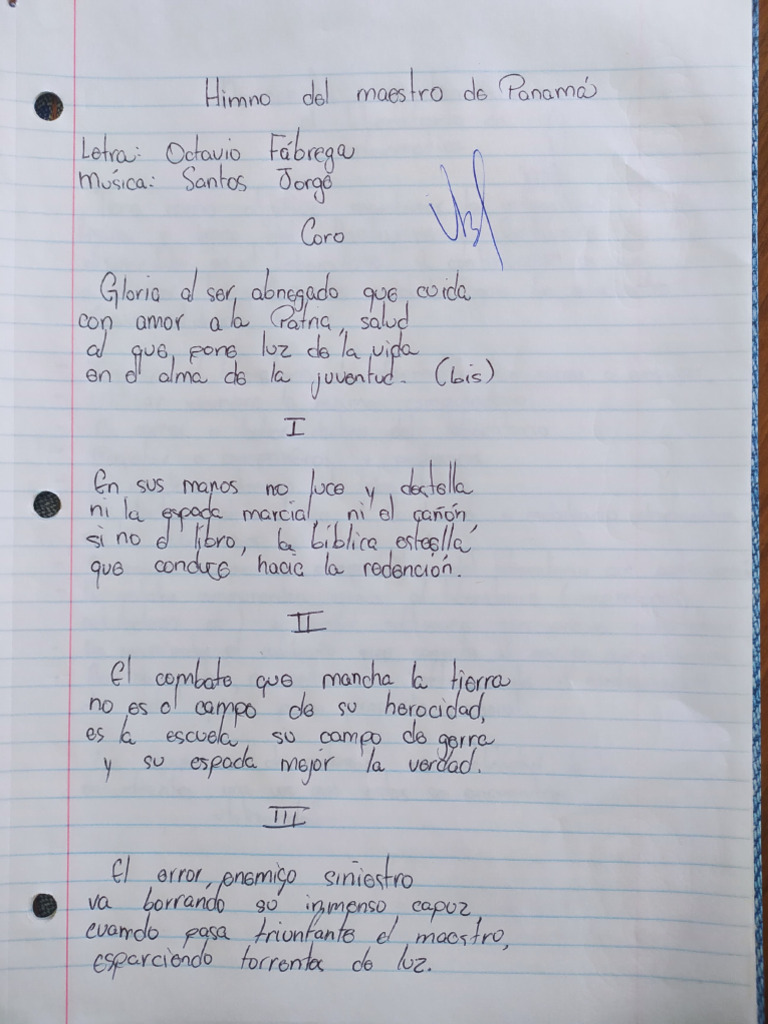 Himno del maestro de Panamá
Letra: Octavio Fábrega
Música: Santos Jorge
Coro
Gloria al ser, abnegado que cuida
con amor a la Patria, salud
al que, pone luz de la vida
en el alma de la juventud. (bis)
I
En sus manos no luce y destella
ni la espada marcial, ni el cañón,
si no el libro, la bíblica estrella
que conduce hacia la redención.
II
El combate que mancha la tierra
no es el campo de su herocidad,
es la escuela su campo de gerra
y su espada mejor la verdad.
III
El error, enemigo siniestro
va borrando su inmenso capuz,
cuamdo pasa triunfante el maestro,
esparciendo torrentes de luz.